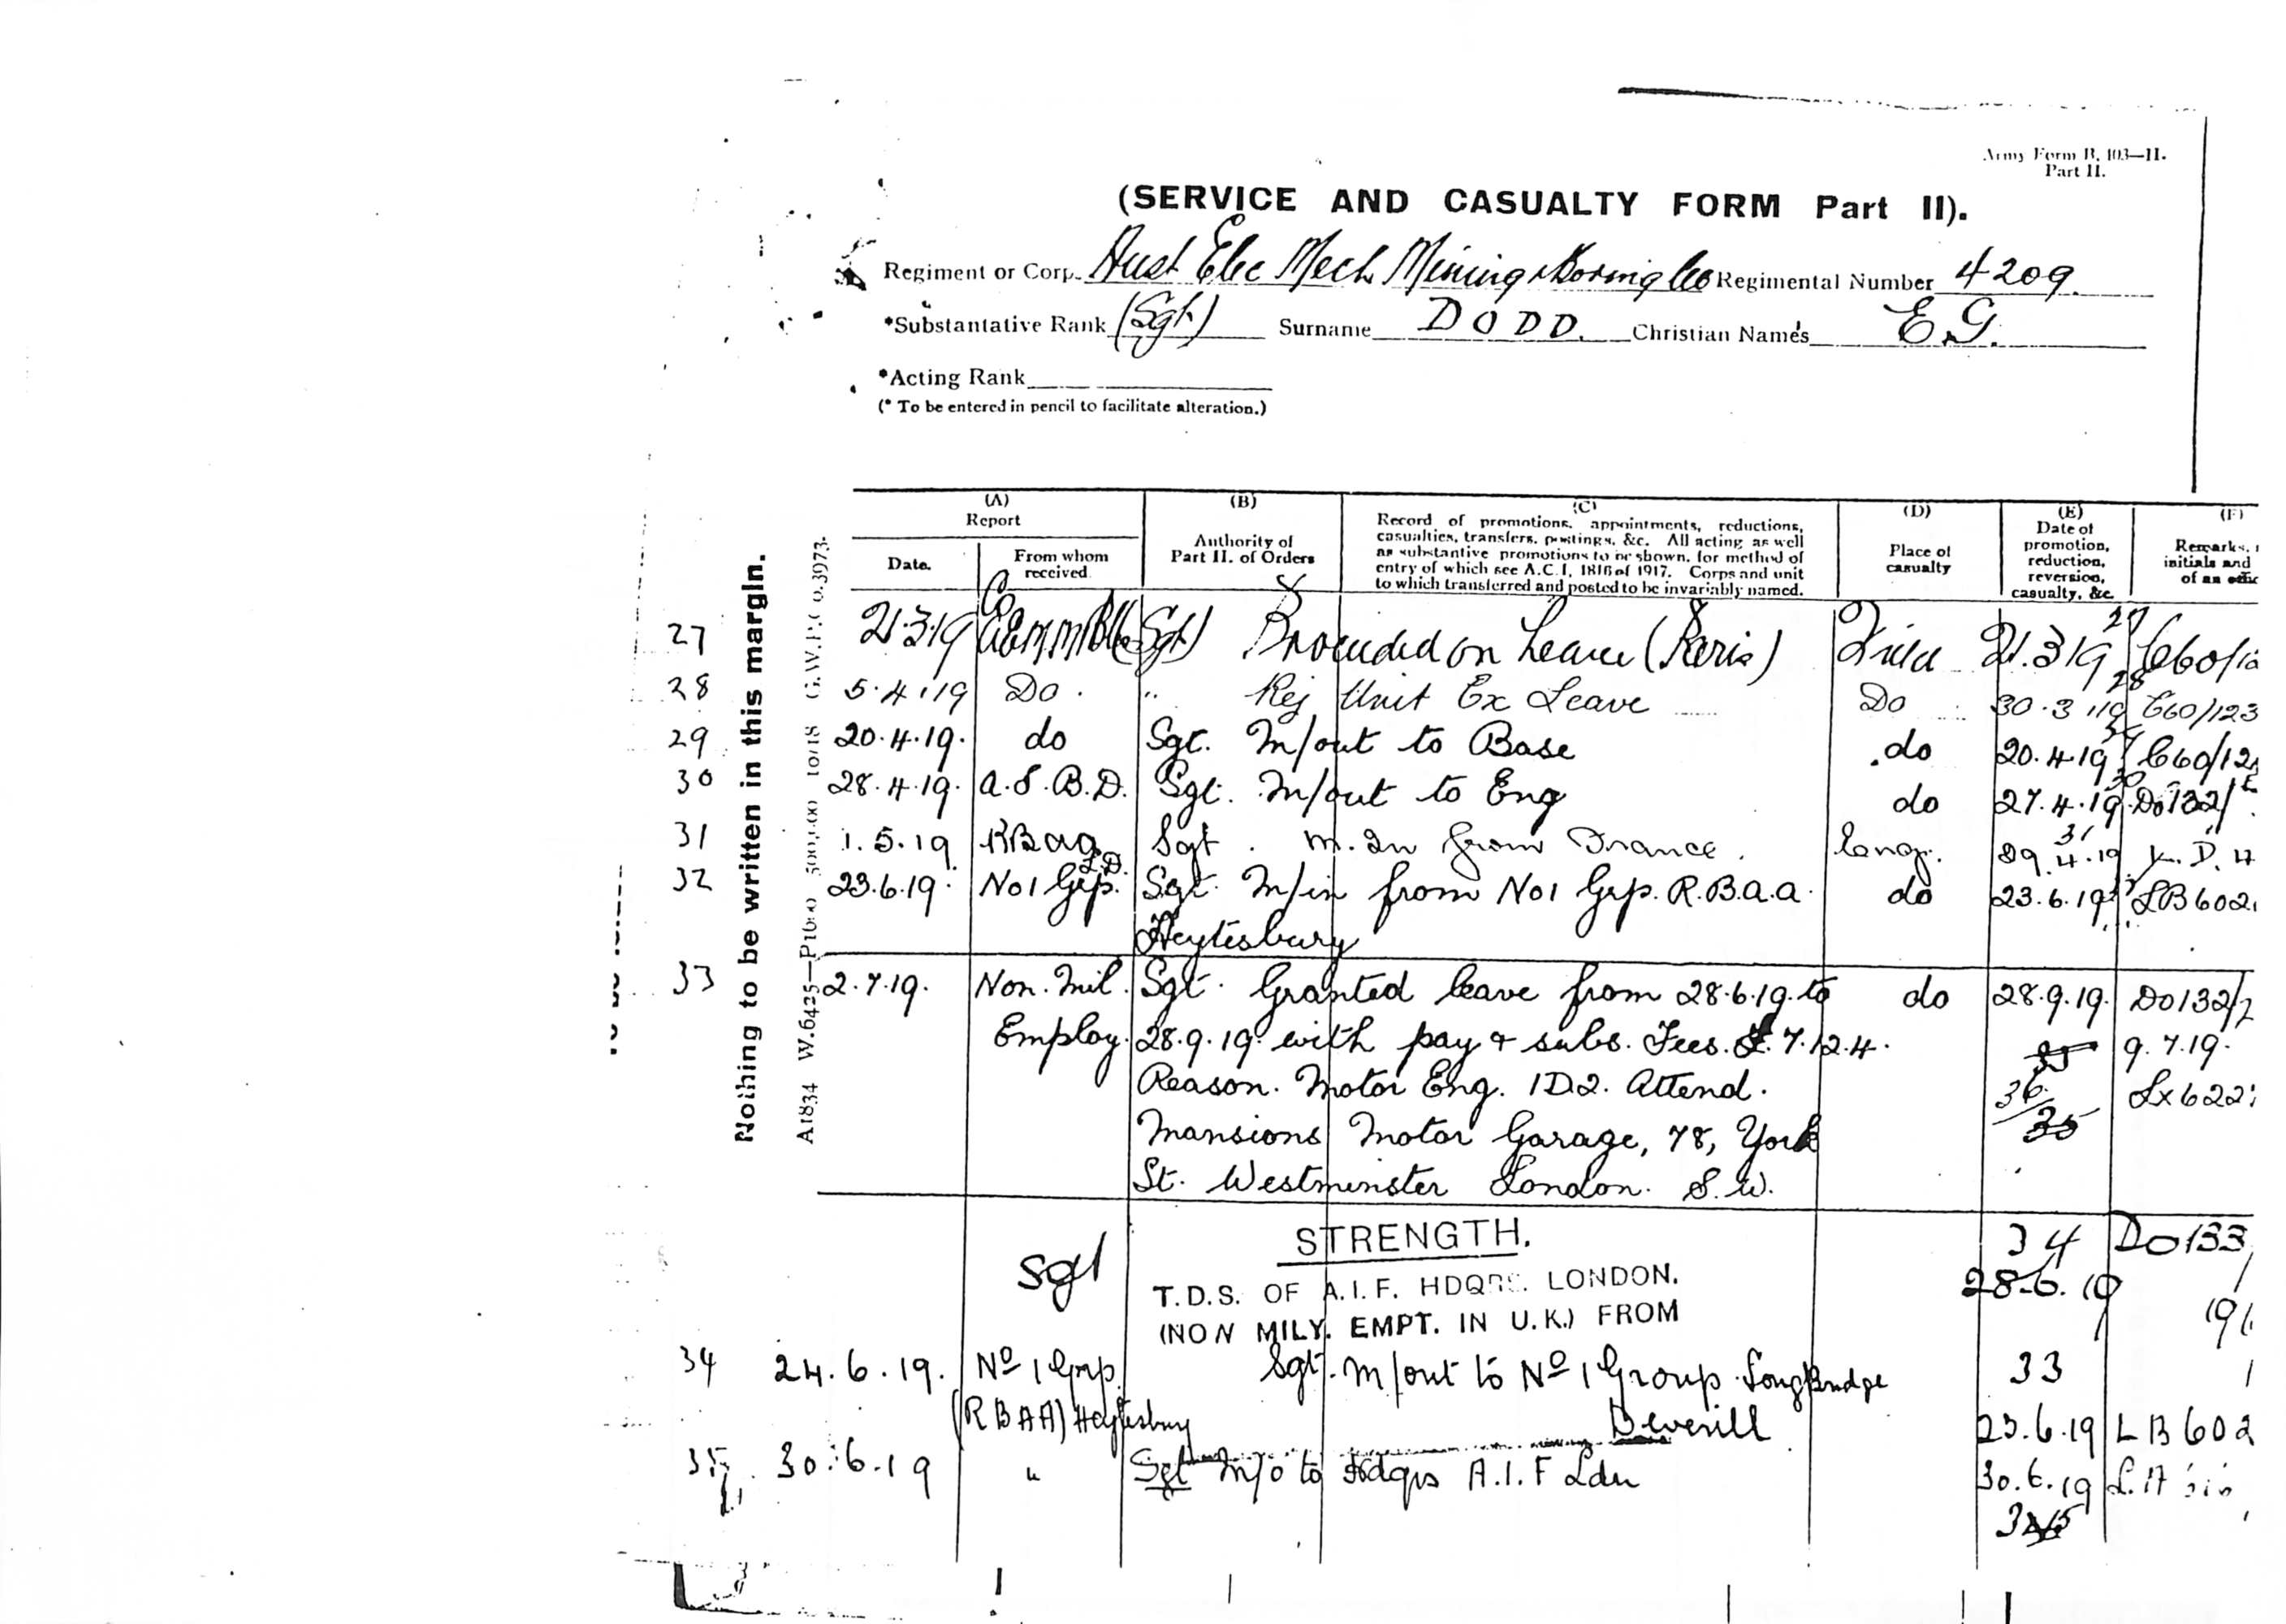 Army Form B. 103—II.
Part II.
(SERVICE AND CASUALTY FORM Part II).
Regiment or Corp. Aust Elec Mech Mining & Boring Co Regimental Number 4209.
*Substantive Rank (Sgt) Surname DODD. Christian Names E.G.
*Acting Rank
(* To be entered in pencil to facilitate alteration.)
Nothing to be written in this margin.
A1834 W.6425—P1600 500,000 10/18 G.W.P.Co.3973.
(A) (B) (C) (D) (E) (F)
Report
Date. From whom received
Authority of Part II. of Orders
Record of promotions, appointments, reductions,
casualties, transfers, postings, &c. All acting as well
as substantive promotions to be shown, for method of
entry of which see A.C.I. 1816 of 1917. Corps and unit
to which transferred and posted to be invariably named.
Place of casualty
Date of promotion, reduction, reversion, casualty, &c.
Remarks,
initials and
of an
27 21.3.19 (Sgt) Proceeded on Leave (Paris) Field 21.3.19 27
28 5.4.19 Do. " Rej Unit Ex Leave Do 30.3.19 28 C60/123
29 20.4.19. do Sgt. M/out to Base do 20.4.19 C60/12
30 28.4.19. A.S.B.D. Sgt. M/out to Eng do 27.4.19 30 Do132/
31 1.5.19 Sgt. M. In from France. Eng. 29.4.19 31
32 23.6.19. No1 Grp. Sgt. M/in from No1 Grp. R.B.A.A. do 23.6.19 LB602
Heytesbury
33 2.7.19. Non. Mil. Sgt. Granted leave from 28.6.19. to do 28.9.19. Do132/
Employ. 28.9.19. with pay & subs. Fees. £.7.12.4. 9.7.19.
Reason. Motor Eng. 1D2. Attend. 36 Lx622
Mansions Motor Garage, 78, York 35
St. Westminster London. S.W.
STRENGTH. 34 Do133
Sgt T.D.S. OF A.I.F. HDQRS. LONDON. 28.6.19
(NON MILY. EMPT. IN U.K.) FROM
34 24.6.19. No 1 Grp Sgt. M/out to No 1 Group Longbridge 33
(RBAA) Heytesbury Deverill 23.6.19 LB602
35 30.6.19 " Sgt M/o to Hdqrs A.I.F Ldn 30.6.19